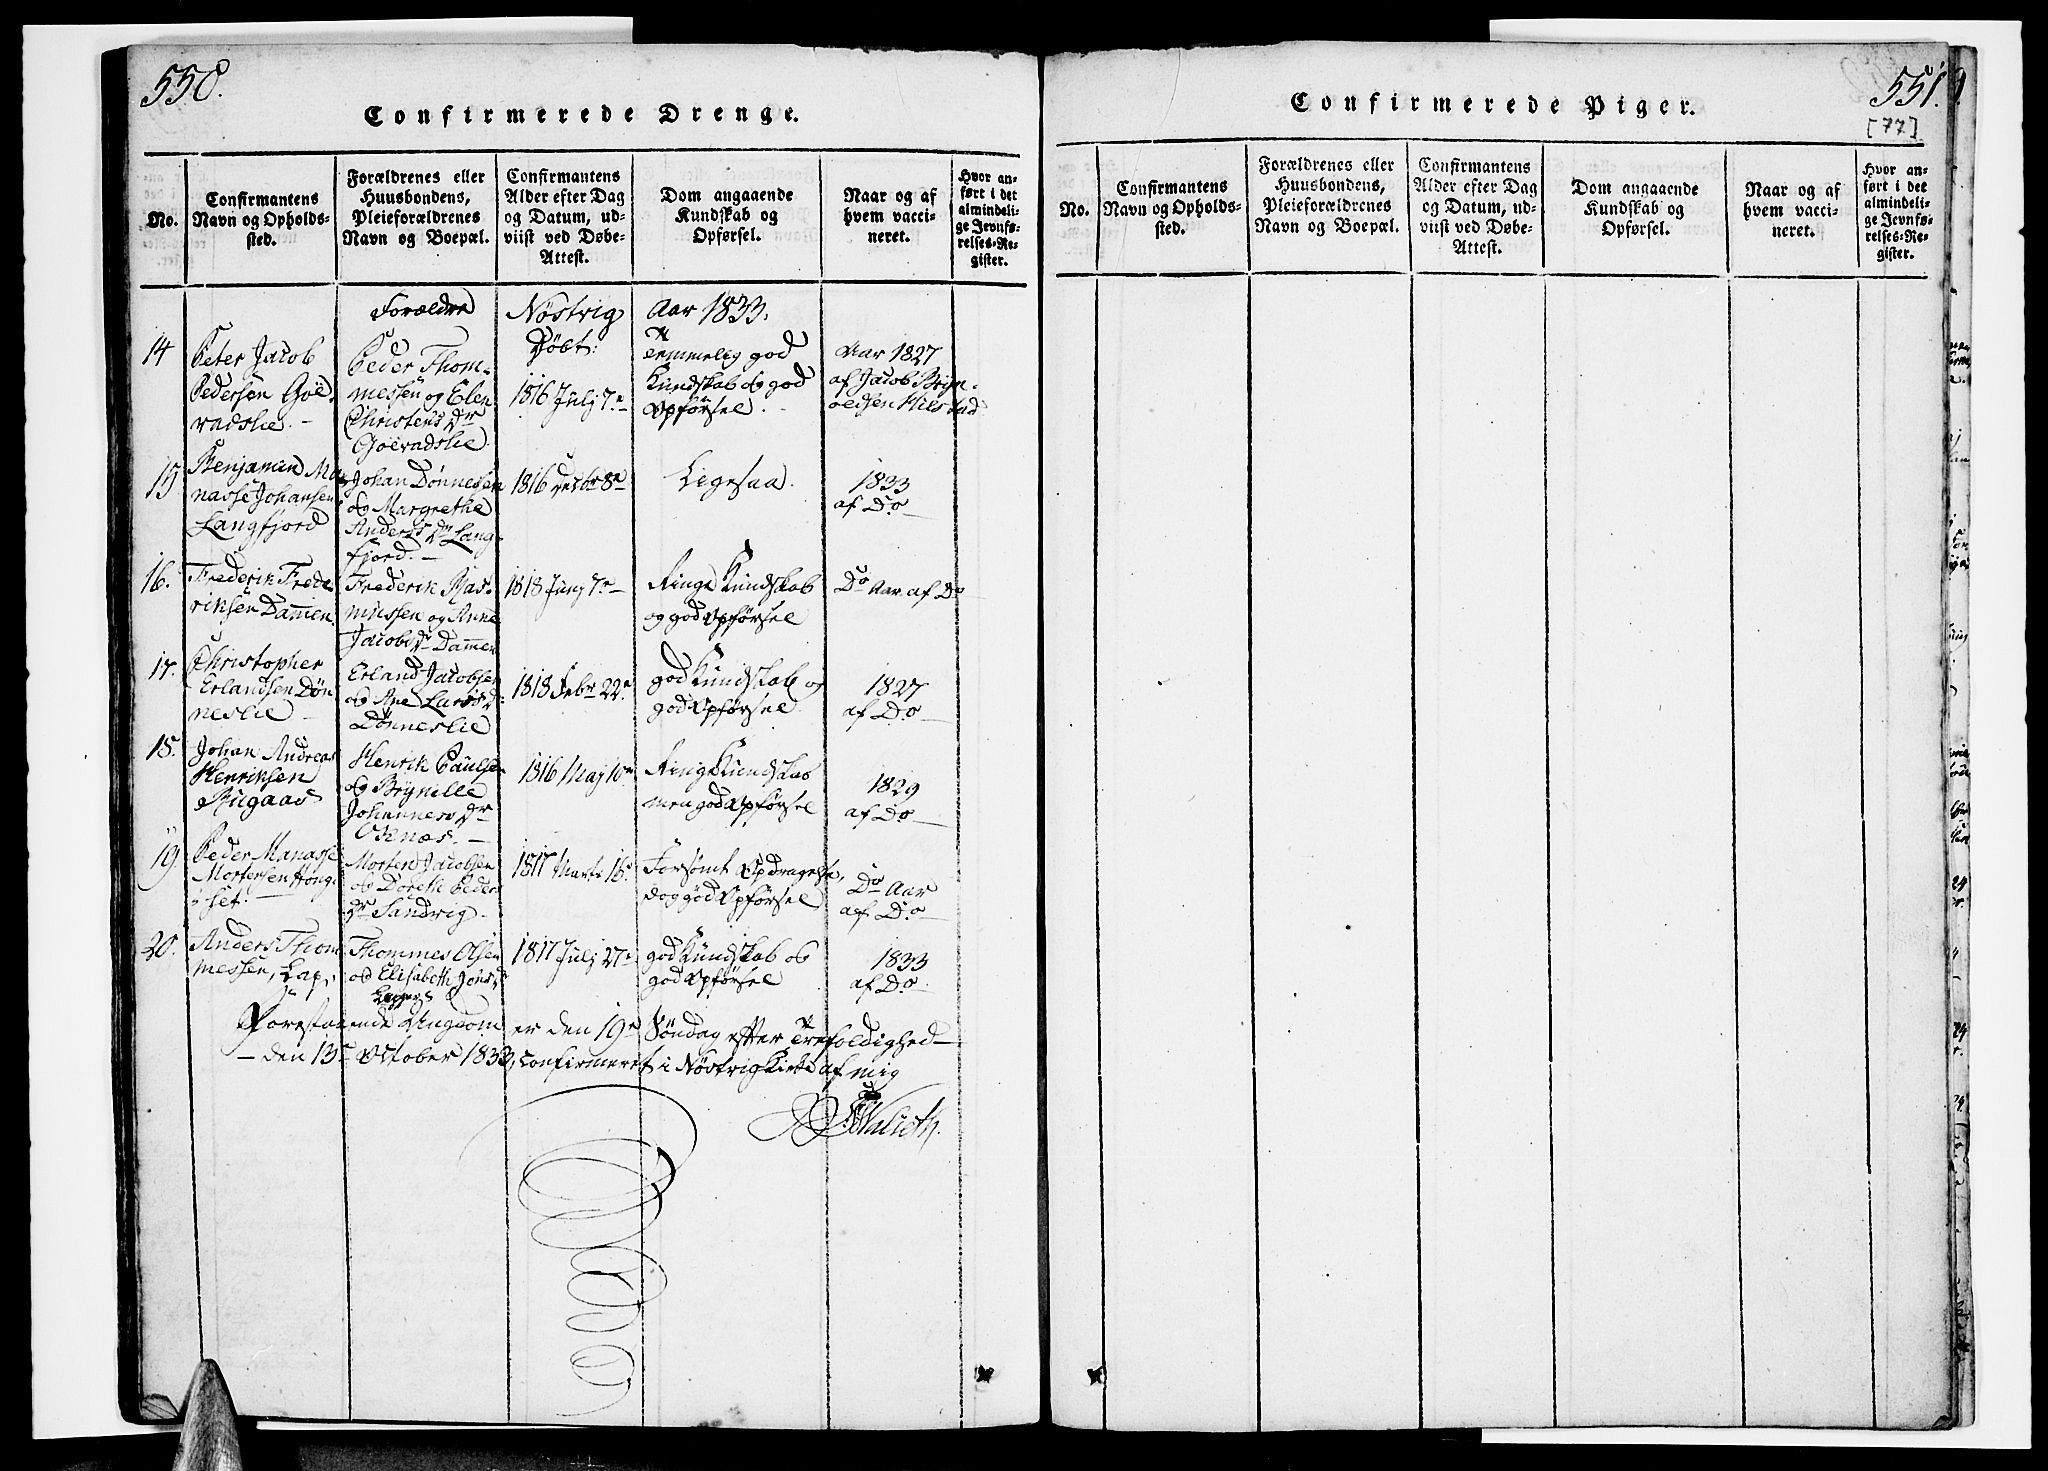 550.
Confirmerede Drenge.
No.
Confirmantens
Navn og Opholds-
sted.
Forældrenes eller
Huusbondens,
Pleieforældrenes
Navn og Boepæl.
Confirmantens
Alder efter Dag
og Datum, ud-
viist ved Døbe-
Attest.
Dom angaaende
Kundskab og
Opførsel.
Naar og af
hvem vacci-
neret.
Hvor an-
ført i det
almindeli-
ge Jevnfø-
relses-Re-
gister.
Forældre
Nøstvig
Døbt:
Aar 1833.
14
Peter Jacob
Pedersen Goë-
vadslie.
Peder Thom-
messen og Elen
Christens Dr
Goevadslie.
1816 Julj 7e
Temmelig god
Kundskab og god
Opførsel.
Aar 1827
af Jacob Bryn-
oldsen Hilstad
15
Benjamin Ma-
nasse Johansen
Langfjord
Johan Dønnesen
og Margrethe
Anders Dr Lang-
fjord.
1816 Decbr 8e
Ligesaa.
1833
af Do
16.
Frederik Frede-
riksen Dammen.
Frederik Ras-
mussen og Anne
Jacobs Dr Dammen
1818 Junj 7e
Ringe Kundskab
og god Opførsel
Do Aar af Do
17.
Christopher
Erlandsen Døn
neslie
Erland Jacobsen
og Ane Lars Dr
Dønneslie
1818 Febr 22e
god Kundskab og
god Opførsel.
1827
af Do
18.
Johan Andreas
Henriksen
Rugaas
Henrik Paulsen
og Brynille
Johannes Dr
Oknæs.
1816 Maj 10e
Ringe Kundskab
men god Opførsel
1829
af Do
19.
Peder Manasse
Mortensen Hong-
set.
Morten Jacobsen
og Dorethe Peder
Dr Sandvig.
1817 Marts 16e
Forsømt Opdragelse,
dog god Opførsel
Do Aar
af Do
20.
Anders Thom
messen, Lap.
Thommes Olsen
og Elisabeth Jons Dr
1817 Julj 27e
god Kundskab og
god Opførsel
1833
af Do
Forestaaende Ungdom er den 19e Søndag efter Trefoldighed
den 13e October 1833, confirmeret i Nøstvig Kirke af mig
551.
[77]
Confirmerede Piger.
No.
Confirmantens
Navn og Opholds-
sted.
Forældrenes eller
Huusbondens,
Pleieforældrenes
Navn og Boepæl.
Confirmantens
Alder efter Dag
og Datum, ud-
viist ved Døbe-
Attest.
Dom angaaende
Kundskab og
Opførsel.
Naar og af
hvem vacci-
neret.
Hvor an-
ført i det
almindeli-
ge Jevnfø-
relses-Re-
gister.